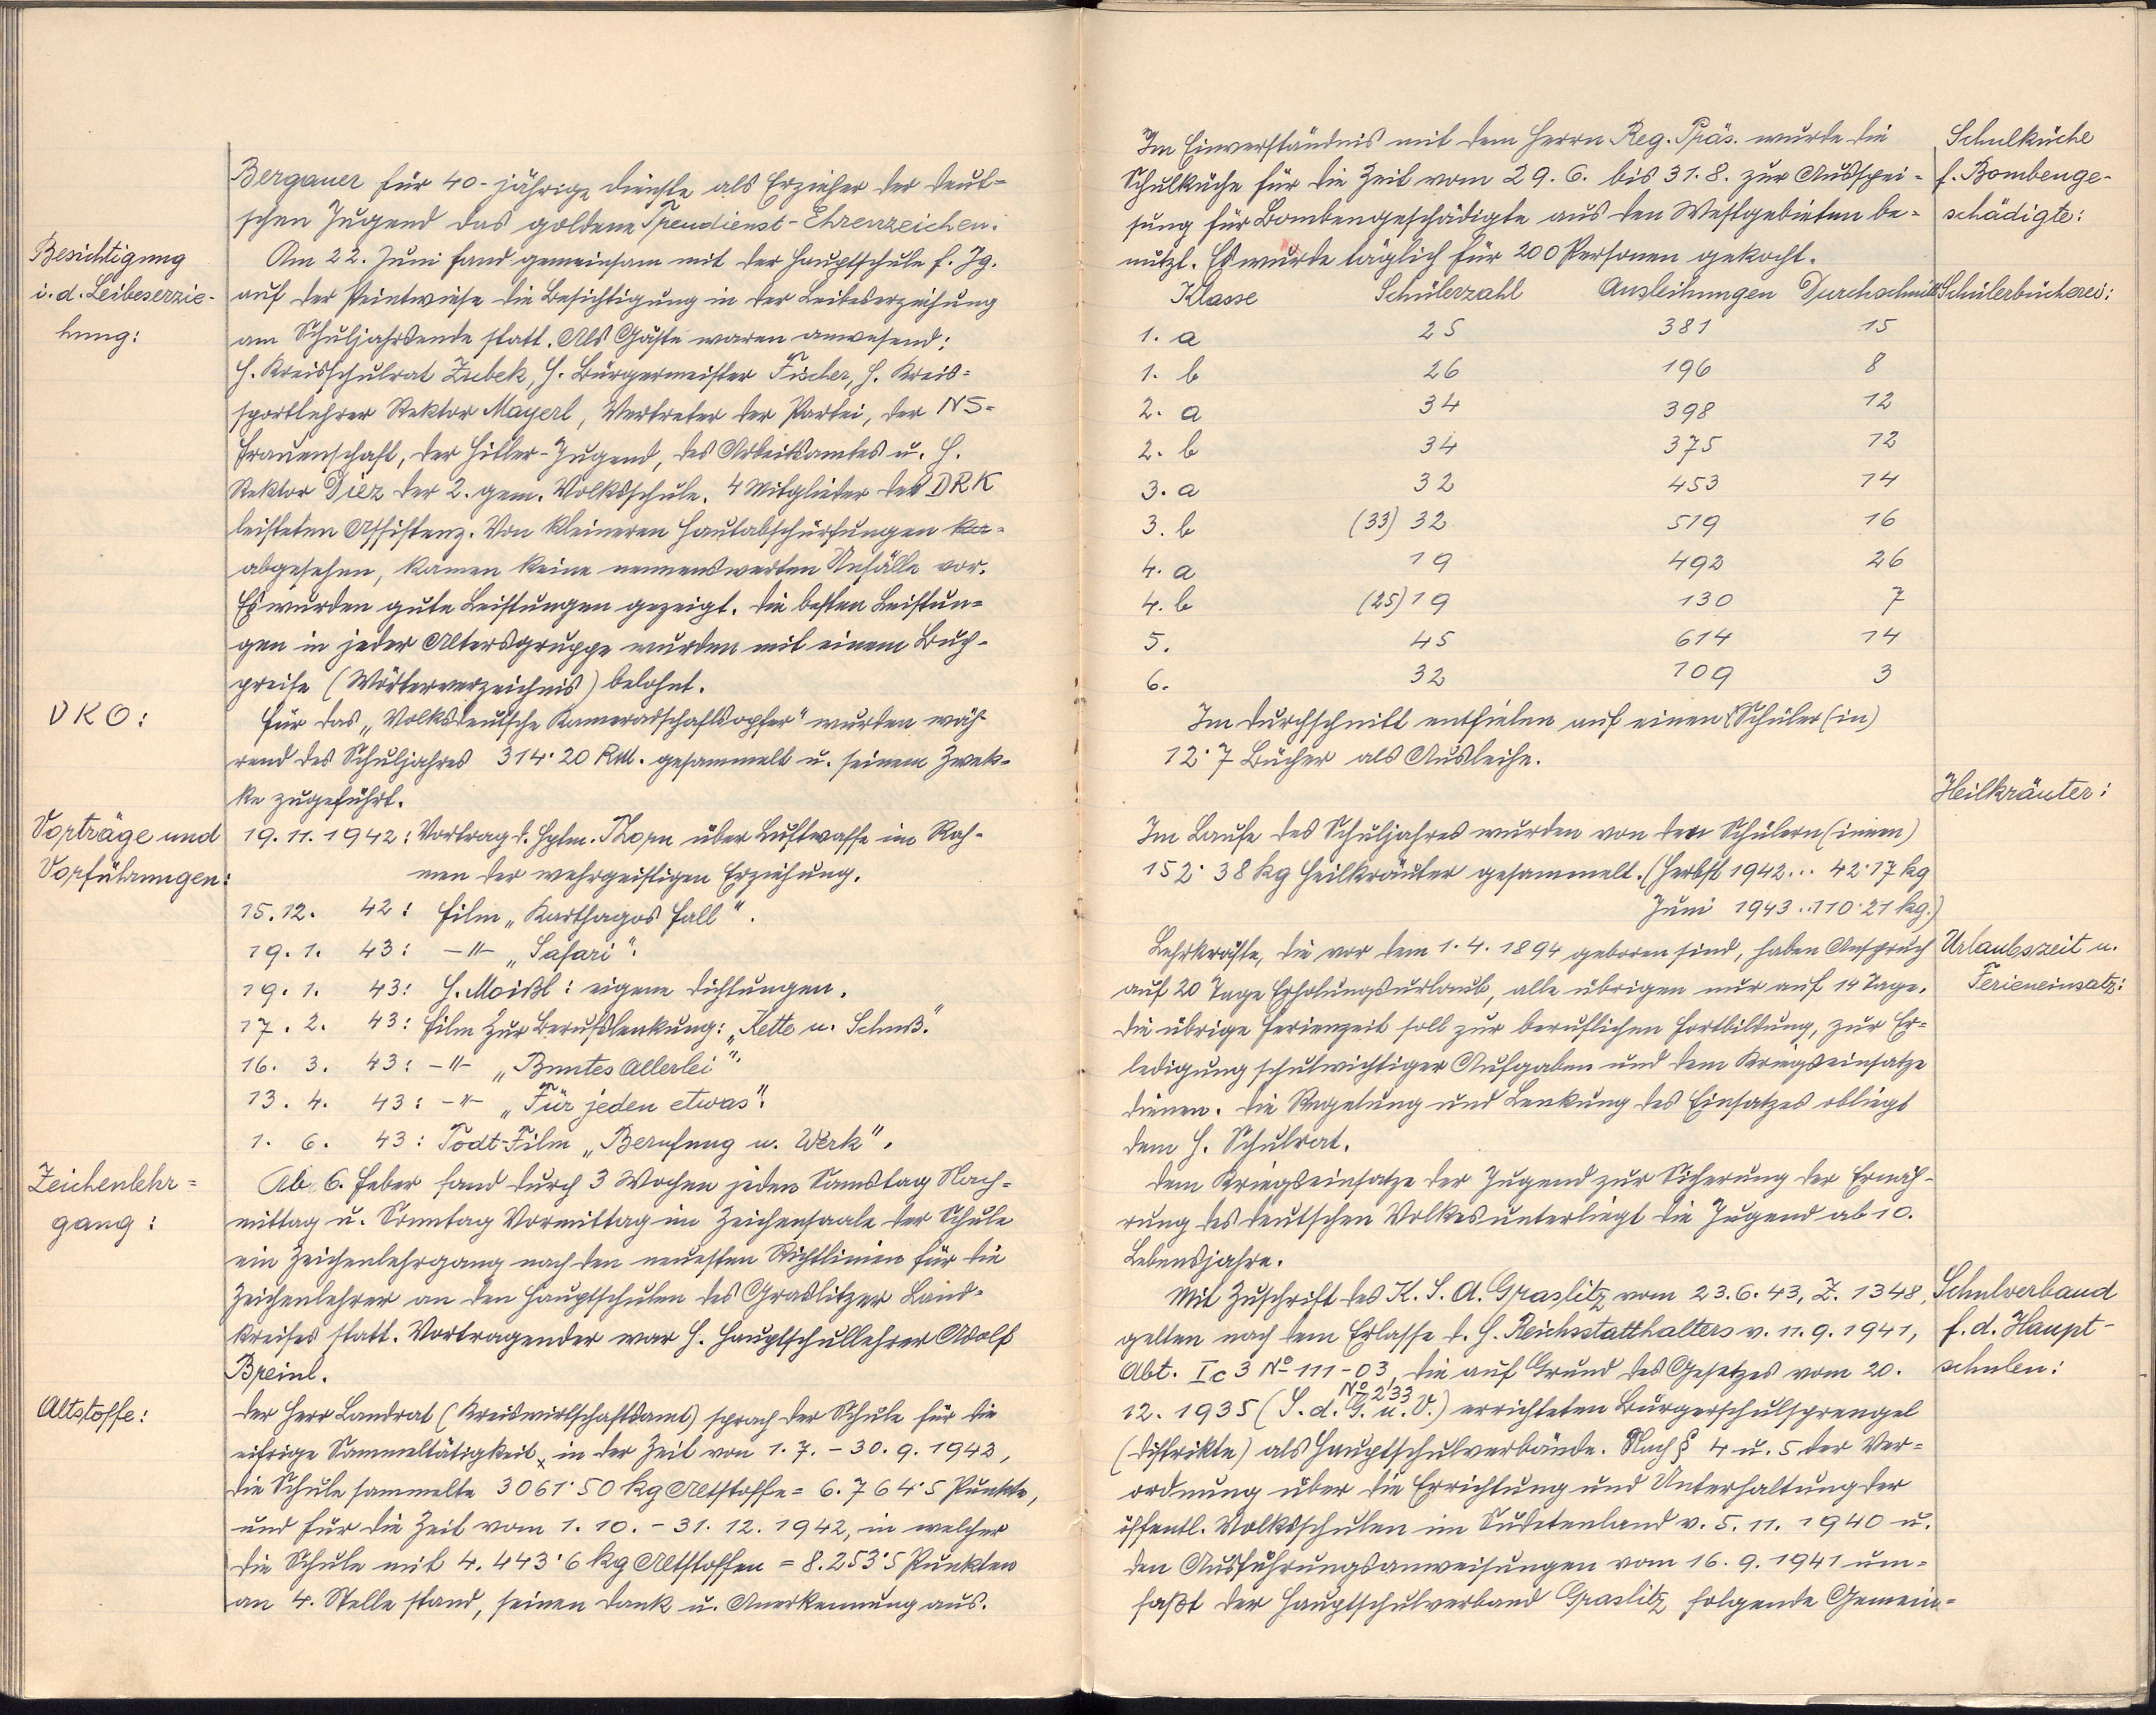 Bergauer für 40-jährige Dienste als Erzieher der deut-
schen Jugend das goldene Treudienst-Ehrenzeichen.
Besichtigung
i. d. Leibeserzie-
hung:
Am 22. Juni fand gemeinsam mit der Hauptschule f. Jg.
auf der Peintwiese die Besichtigung in der Leibeserziehung
am Schuljahrsende statt. Als Gäste waren anwesend:
H. Kreisschulrat Zubek, H. Bürgermeister Fischer, H. Kreis-
sportlehrer Rektor Mayerl, Vertreter der Partei, der NS-
Frauenschaft, der Hitler-Jugend, des Arbeitsamtes u. H.
Rektor Diez der 2. gem. Volksschule. 4 Mitglieder des DRK
leisteten Assistenz. Von kleineren Hautabschürfungen ka-
abgesehen, kamen keine nennenswerten Unfälle vor.
Es wurden gute Leistungen gezeigt. Die besten Leistun-
gen in jeder Altersgruppe wurden mit einem Buch-
preise (Wörterverzeichnis) belohnt.
VKO:
Für das „Volksdeutsche Kameradschaftsopfer" wurden wäh-
rend des Schuljahres 314·20 RM. gesammelt u. seinem Zwek-
ke zugeführt.
Vorträge und
Vorführungen:
19. 11. 1942: Vortrag d. Hptm. Thorn über Luftwaffe im Rah-
men der wehrgeistigen Erziehung.
15. 12. 42: Film „Karthagos Fall".
19. 1. 43: -"- „Safari".
19. 1. 43: H. Moißl: eigene Dichtungen.
17. 2. 43: Film zur Berufslenkung: „Kette u. Schuß."
16. 3. 43: -"- „Buntes Allerlei".
13. 4. 43: -"- „Für jeden etwas".
1. 6. 43: Todt-Film „Berufung u. Werk".
Zeichenlehr-
gang:
Ab 6. Feber fand durch 3 Wochen jeden Samstag Nach-
mittag u. Sonntag Vormittag im Zeichensaale der Schule
ein Zeichenlehrgang nach den neuesten Richtlinien für die
Zeichenlehrer an den Hauptschulen des Graslitzer Land-
kreises statt. Vortragender war H. Hauptschullehrer Adolf
Breinl.
Altstoffe:
Der Herr Landrat (Kreiswirtschaftsamt) sprach der Schule für die
eifrige Sammeltätigkeit x in der Zeit von 1. 7. - 30. 9. 1942,
die Schule sammelte 3061·50 kg Altstoffe = 6.764·5 Punkte,
und für die Zeit vom 1. 10. - 31. 12. 1942, in welcher
die Schule mit 4.443·6 kg Altstoffen = 8.253·5 Punkten
an 4. Stelle stand, seinen Dank u. Anerkennung aus.
Im Einverständnis mit dem Herrn Reg. Präs. wurde die
Schulküche für die Zeit vom 29. 6. bis 31. 8. zur Ausspei-
sung für Bombengeschädigte aus den Westgebieten be-
nützt. Es wurde täglich für 200 Personen gekocht.
Schulküche
f. Bombenge-
schädigte:
Klasse Schülerzahl Ausleihungen Durchschnitt
Schülerbücherei:
1. a 25 381 15
1. b 26 196 8
2. a 34 398 12
2. b 34 375 12
3. a 32 453 14
3. b (33) 32 519 16
4. a 19 492 26
4. b (25) 19 130 7
5. 45 614 14
6. 32 109 3
Im Durchschnitt entfielen auf einen Schüler(in)
12·7 Bücher als Ausleihe.
Heilkräuter:
Im Laufe des Schuljahres wurden von den Schülern(innen)
152·38 kg Heilkräuter gesammelt. (Herbst 1942... 42·17 kg
Juni 1943..110·21 kg.)
Urlaubszeit u.
Ferieneinsatz:
Lehrkräfte, die vor dem 1. 4. 1894 geboren sind, haben Anspruch
auf 20 Tage Erholungsurlaub, alle übrigen nur auf 14 Tage.
Die übrige Ferienzeit soll zur beruflichen Fortbildung, zur Er-
ledigung schulwichtiger Aufgaben und dem Kriegseinsatze
dienen. Die Regelung und Lenkung des Einsatzes obliegt
dem H. Schulrat.
Dem Kriegseinsatze der Jugend zur Sicherung der Ernäh-
rung des deutschen Volkes unterliegt die Jugend ab 10.
Lebensjahre.
Schulverband
f. d. Haupt-
schulen:
Mit Zuschrift des K. S. A. Graslitz vom 23. 6. 43, Z. 1348,
gelten nach dem Erlasse d. H. Reichsstatthalters v. 11. 9. 1941,
Abt. I c 3 No 111-03, die auf Grund des Gesetzes vom 20.
No 233
12. 1935 (S. d. G. u. V.) errichteten Bürgerschulsprengel
(Distrikte) als Hauptschulverbände. Nach § 4 u. 5 der Ver-
ordnung über die Errichtung und Unterhaltung der
öffentl. Volksschulen im Sudetenland v. 5. 11. 1940 u.
den Ausführungsanweisungen vom 16. 9. 1941 um-
faßt der Hauptschulverband Graslitz folgende Gemein-